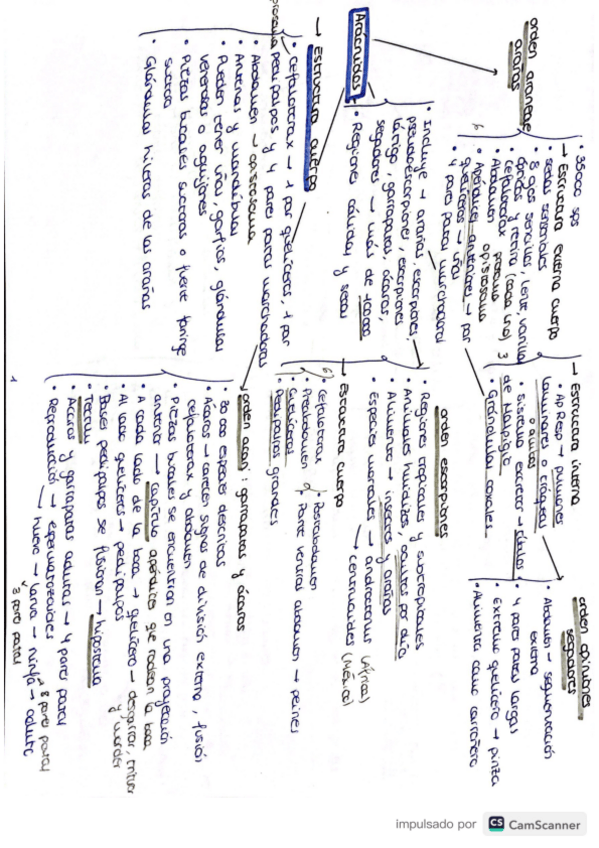 Arácnidos
• Incluye → arañas, escorpiones,
pseudoescorpiones, escorpiones
látigo, garrapatas, ácaros,
segadores → más de
• Regiones cálidas y secas
→ estructura cuerpo
prosoma
• Cefalotórax → 1 par quelíceros, 1 par
pedipalpos y 4 pares patas marchadoras
• Abdomen → opistosoma
• Antenas y mandíbulas
• Pueden tener uñas, garfios, glándulas
venenosas o aguijones
• Piezas bucales suctoras o fuerte faringe
suctora
• Glándulas hileras de las arañas
orden araneae
arañas
• 35000 sps
→ Estructura externa cuerpo
sedas sensoriales
• 8 ojos sencillos, lente, varillas
ópticas y retina (cada uno)
• Cefalotórax prosoma
• Abdomen opistosoma
• Apéndices anteriores → par
quelíceros → uñas
• 4 pares patas marchadoras
→ Estructura interna
• Ap Resp → pulmones
laminares o tráqueas
o ambos
• Sistema excretor → túbulos
de Malpigio
Glándulas coxales
orden opiniones
segadores
• Abdomen → segmentación
externa
• 4 pares patas largas
• Extremo quelícero → pinza
• Alimenta como carroñero
orden escorpiones
• Regiones tropicales y subtropicales
• Animales huidizos, ocultos por día
• Alimento → insectos y arañas
• Especies mortales → androctonus (África)
→ centruroides (México)
→ Estructura cuerpo
• Cefalotórax
• Preabdomen
• Postabdomen
• Quelíceros
• Parte ventral abdomen → peines
• Pedipalpos grandes
orden acari: garrapatas y ácaros
• 30 000 especies descritas
• Ácaros → carecen signos de división externa, fusión
cefalotórax y abdomen
• Piezas bucales se encuentran en una proyección
anterior → capítulo apéndices que rodean la boca
• A cada lado de la boca → quelícero → desgarrar, triturar
y morder
• Al lado quelíceros → pedipalpos
• Bases pedipalpos se fusionan → hipostoma
• Tectum
• Ácaros y garrapatas adultas → 4 pares patas
• Reproducción → espermatozoides
→ huevo → larva → ninfa → adulto
3 pares patas
8 pares patas
1
impulsado por CS CamScanner